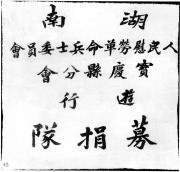 湖南
人民慰勞革命兵士委員會
寶慶縣分會
遊行
募捐隊